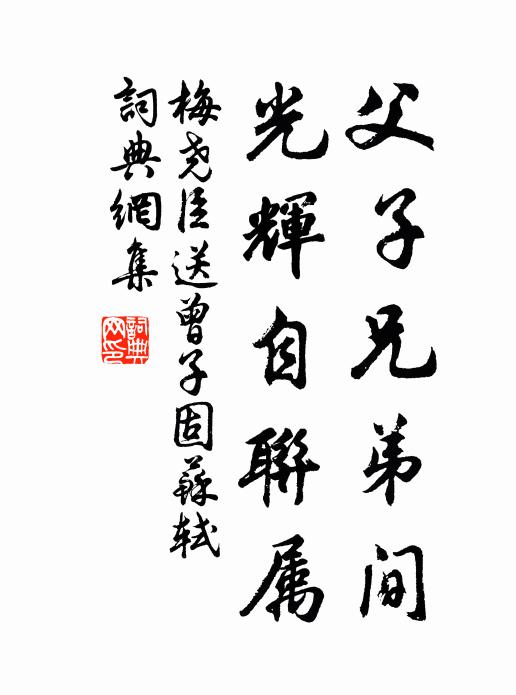 父子兄弟间
光輝自聯属
梅尧臣送曾子固蘇軾
詞典網集
詞典网印